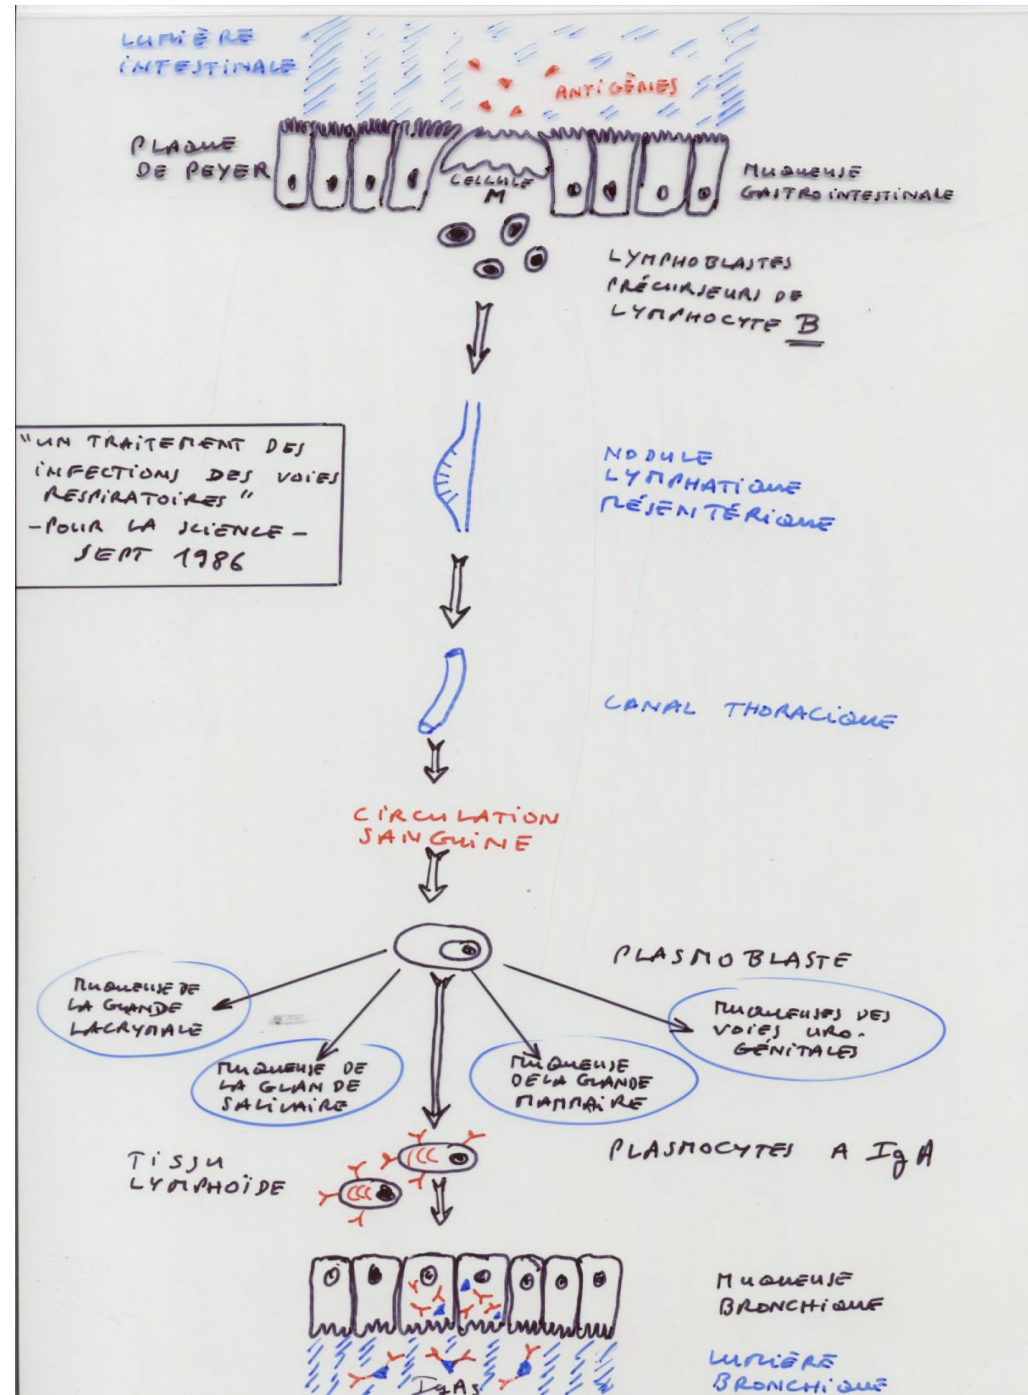 LUMIÈRE
INTESTINALE
ANTIGÈNES
PLAQUE
DE PEYER
CELLULE
M
MUQUEUSE
GASTROINTESTINALE
LYMPHOBLASTES
PRÉCURSEURS DE
LYMPHOCYTE B
"UN TRAITEMENT DES
INFECTIONS DES VOIES
RESPIRATOIRES"
-POUR LA SCIENCE-
SEPT 1986
NODULE
LYMPHATIQUE
MÉSENTÉRIQUE
CANAL THORACIQUE
CIRCULATION
SANGUINE
PLASMOBLASTE
MUQUEUSE DE
LA GLANDE
LACRYMALE
MUQUEUSE DE
LA GLANDE
SALIVAIRE
MUQUEUSE
DE LA GLANDE
MAMMAIRE
MUQUEUSES DES
VOIES URO-
GÉNITALES
TISSU
LYMPHOÏDE
PLASMOCYTES A IgA
MUQUEUSE
BRONCHIQUE
LUMIÈRE
BRONCHIQUE
IgAs